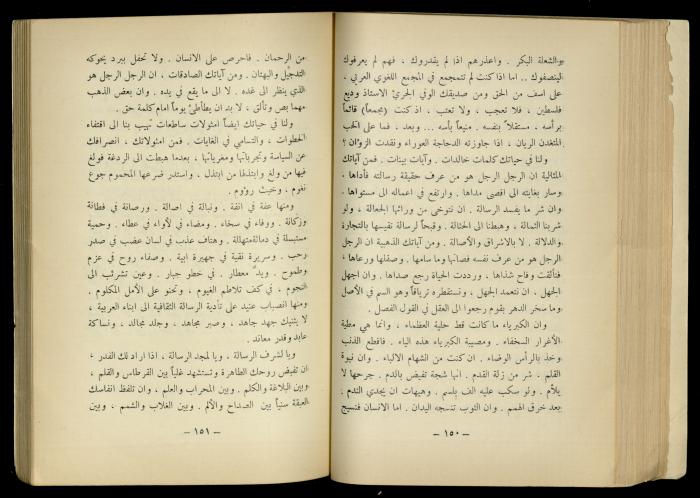 والشعلة البكر . واعذرهم اذا لم يقدروك ، فهم لم يعرفوك
لينصفوك .. اما اذا كنت لم تتمجمع في المجمع اللغوي العربي ،
على اسف من الحق ومن صديقك الوفي الجريء الاستاذ وديع
فلسطين ، فلا تعجب ، ولا تعتب ، اذ كنت (مجمعاً) قائماً
برأسه . مستقلاً بنفسه . منيعاً بأسه ... وبعد ، فما على الحب
المتغدن الريان ، اذا جاوزته الدجاجة العوراء ونقدت الزؤان ؟
ولنا في حياتك كلمات خالدات . وآيات بينات . فمن آياتك
المثالية ان الرجل الرجل هو من عرف حقيقة رسالته فأداها .
وسار بغايته الى اقصى مداها . وارتفع في اعماله الى مستواها .
وان شر ما يفسد الرسالة . ان نتوخى من ورائها الجعالة ، ولو
شربنا الثمالة ، وهبطنا الى الحثالة . وقبحاً لرسالة نقيسها بالتجارة
والدلالة . لا بالاشراق والأصالة . ومن آياتك الذهبية ان الرجل
الرجل هو من عرف نفسه فصانها وما سامها . وصقلها ورعاها ،
فتألقت وفاح شذاها ، ورددت الحياة رجع صداها . وان اجهل
الجهل ، ان نتعمد الجهل ، ونستقطره ترياقاً وهو السم في الأصل
وما سخر الدهر بقوم رجعوا الى العقل في القول الفصل .
وان الكبرياء ما كانت قط حلية العظماء ، وانما هي مطية
الأغرار السخفاء . ومصيبة الكبرياء هذه الياء . فاقطع الذنب
وخذ بالرأس الوضاء . ان كنت من الشهام الالباء . وان نبوة
القلم . شر من زلة القدم . انها شجة تفيض بالدم . جرحها لا
يلأم . ولو سكب عليه الف بلسم . وهيهات ان يجدي الندم .
بعد خرق الهمم . وان الثوب تنسجه اليدان . اما الانسان فنسيج
– ١٥٠ –
من الرحمان . فاحرص على الانسان . ولا تحفل ببرد يحوكه
التدجيل والبهتان . ومن آياتك الصادقات ، ان الرجل الرجل هو
الذي ينظر الى غده . لا الى ما يقع في يده . وان بعض الذهب
مهما بص وتألق ، لا بد ان يطأطئ يوماً امام كلمة حق .
ولنا في حياتك ايضاً امثولات ساطعات تهيب بنا الى اقتفاء
الخطوات ، والتسامي في الغايات . فمن امثولاتك ، انصرافك
عن السياسة وتجرباتها ومغرياتها ، بعدما هبطت الى الردغة فولغ
فيها من ولغ وابتذلها من ابتذل ، واستدر ضرعها المحموم جوع
نغوم ، وخبث رؤوم .
ومنها عفة في انفة . ونبالة في اصالة . ورصانة في فطانة
وزكانة . ووفاء في سخاء . ومضاء في لأواء في عطاء . وحمية
مستبسلة في دماثة متهللة . وهتاف عذب في لسان عضب في صدر
رحب . وسريرة نقية في جهيرة ابية . وصفاء روح في عزم
وطموح . ويد معطار . في خطو جبار . وعين تشرئب الى
النجوم ، في كف تلاطم الغيوم ، وتحنو على الأمل المكلوم .
ومنها انصباب عنيد على تأدية الرسالة الثقافية الى ابناء العربية ،
لا يثنيك جهد جاهد ، وصبر مجاهد ، وجلد مجالد ، ونساكة
عابد وقدر معاند .
ويا لشرف الرسالة ، ويا لمجد الرسالة ، اذا اراد لك القدر ،
ان تفيض روحك الطاهرة وتستشهد غلباً بين القرطاس والقلم ،
وبين البلاغة والكلم . وبين المحراب والعلم ، وان تلفظ انفاسك
العبقة سنياً بين الصداح والألم . وبين الغلاب والشمم ، وبين
– ١٥١ –